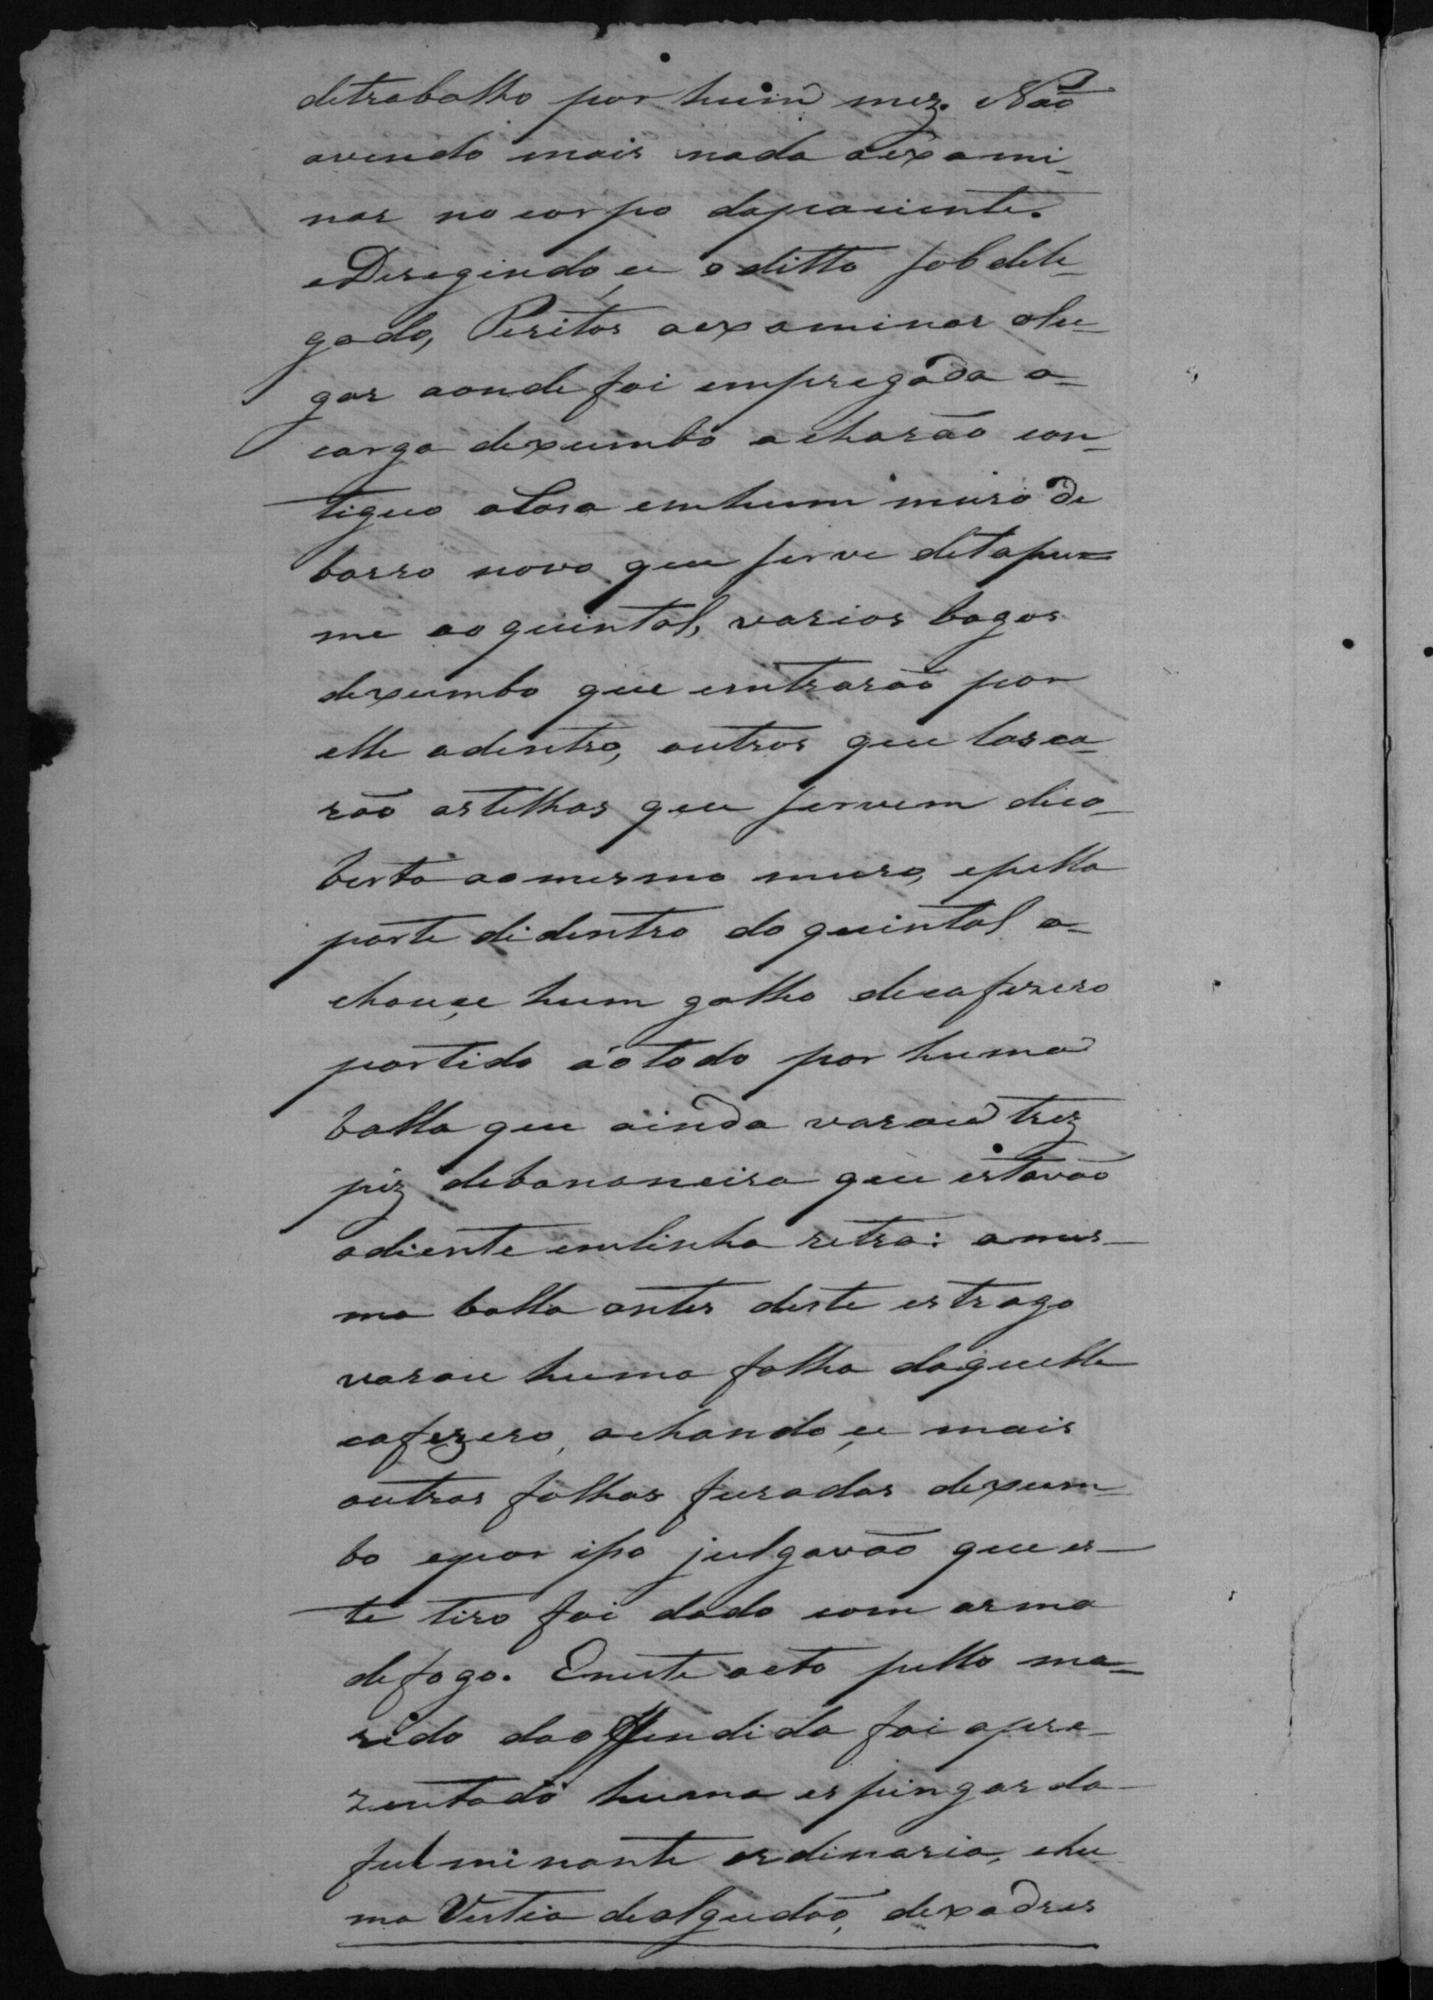 detrabalho por hum mez. Não
avendo mais nada aexami-
nar no corpo dapaciente.
Deregindo,ce o ditto sobdele-
gado, Peritos aexaminar olu-
gar aonde foi empregada a-
carga dexumbo acharão con-
tiguo aCasa emhum muro de
barro novo que serve detapu-
me ao quintal, varios bagos
dexumbo que emtrarão por
elle adentro, outros que lasca-
rão astelhas que servem dico-
berta aomesmo muro, epella
parte didentro do quintal a-
chouçe hum galho decafezero
partido áotodo por huma
balla que ainda varou trez
pez debananeira que estavão
adiente emlinha retra: ames-
ma balla antes deste estrago
varou huma folha daquelle
cafezero, achando,ce mais
outras folhas furadas dexum-
bo epor isso julgavão que es-
te tiro foi dado com arma
defogo. Eneste acto pello ma-
rido daoffendida foi apre-
zentado huma espingarda
fulminante ordinaria, ehu
ma Vestia dealgudão, dexadres